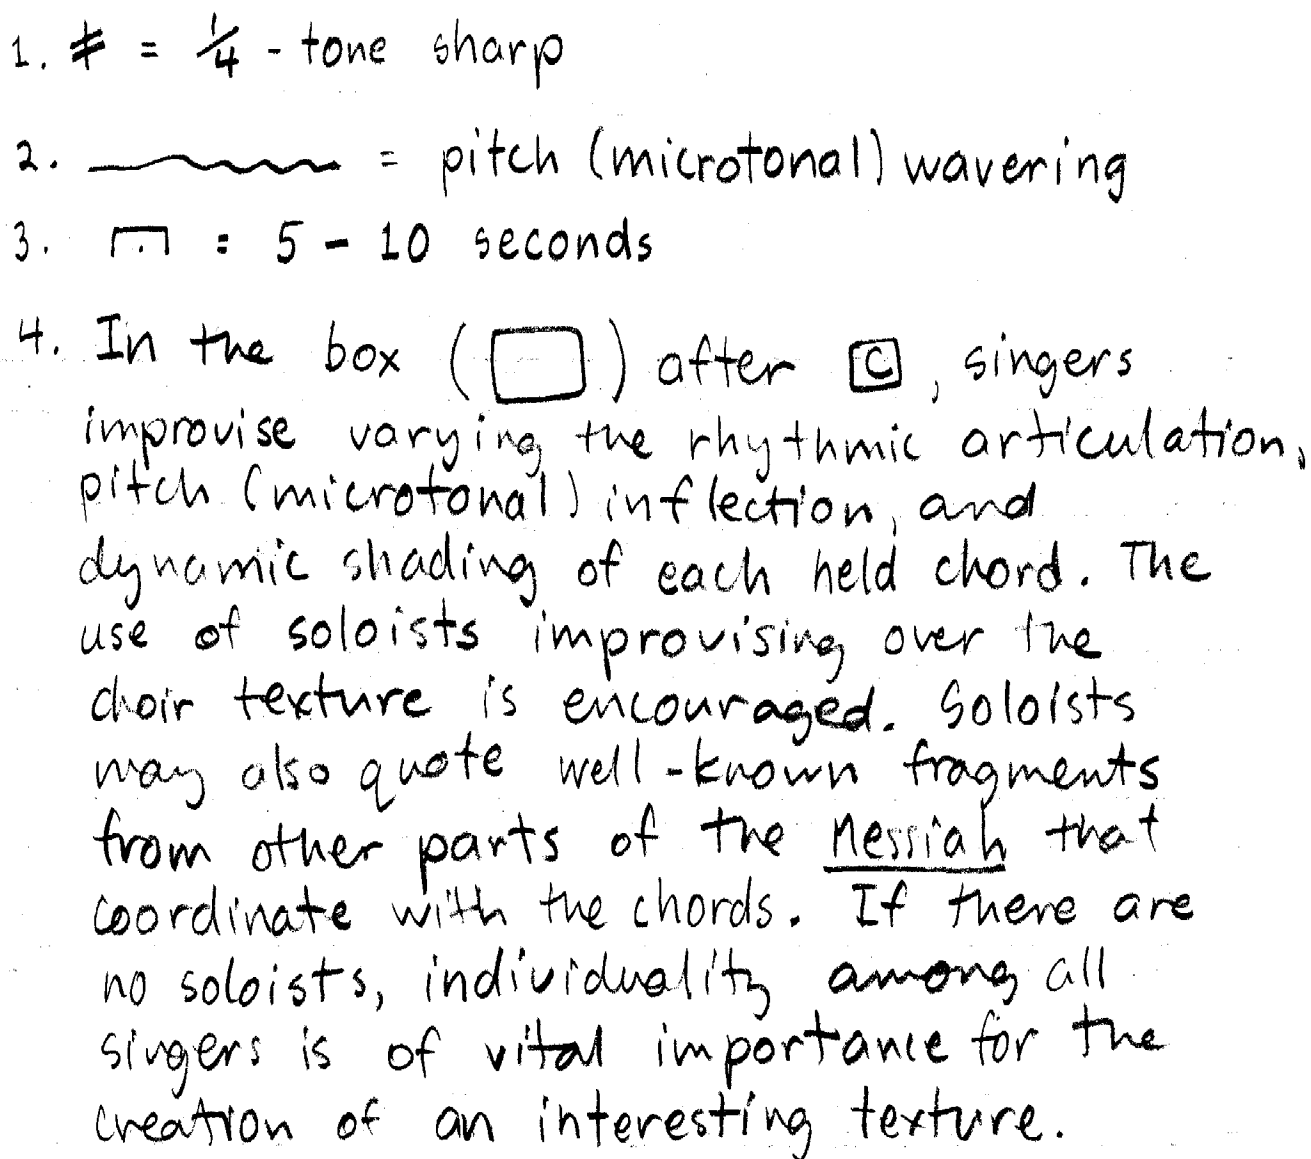 1. ⧧ = 1/4 - tone sharp
2. ﹏﹏ = pitch (microtonal) wavering
3. 𝄐 = 5 - 10 seconds
4. In the box ( □ ) after [C], singers
improvise varying the rhythmic articulation,
pitch (microtonal) inflection, and
dynamic shading of each held chord. The
use of soloists improvising over the
choir texture is encouraged. Soloists
may also quote well-known fragments
from other parts of the Messiah that
coordinate with the chords. If there are
no soloists, individuality among all
singers is of vital importance for the
creation of an interesting texture.